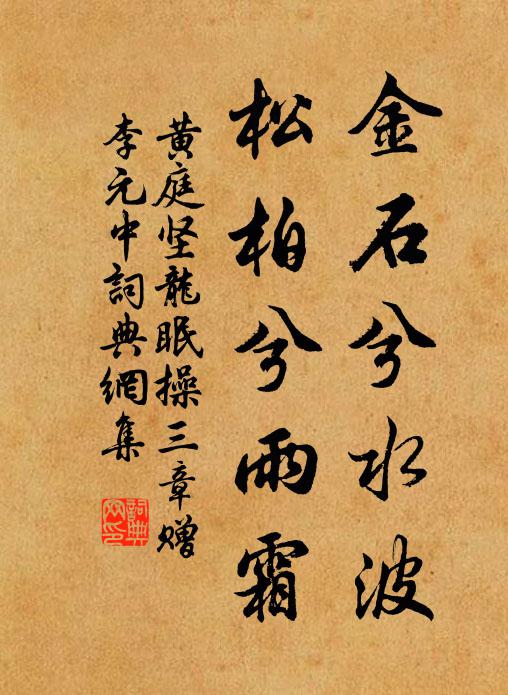 金石兮水波
松柏兮雨霜
黄庭坚龍眠操三章赠
李元中詞典網集
詞典网印